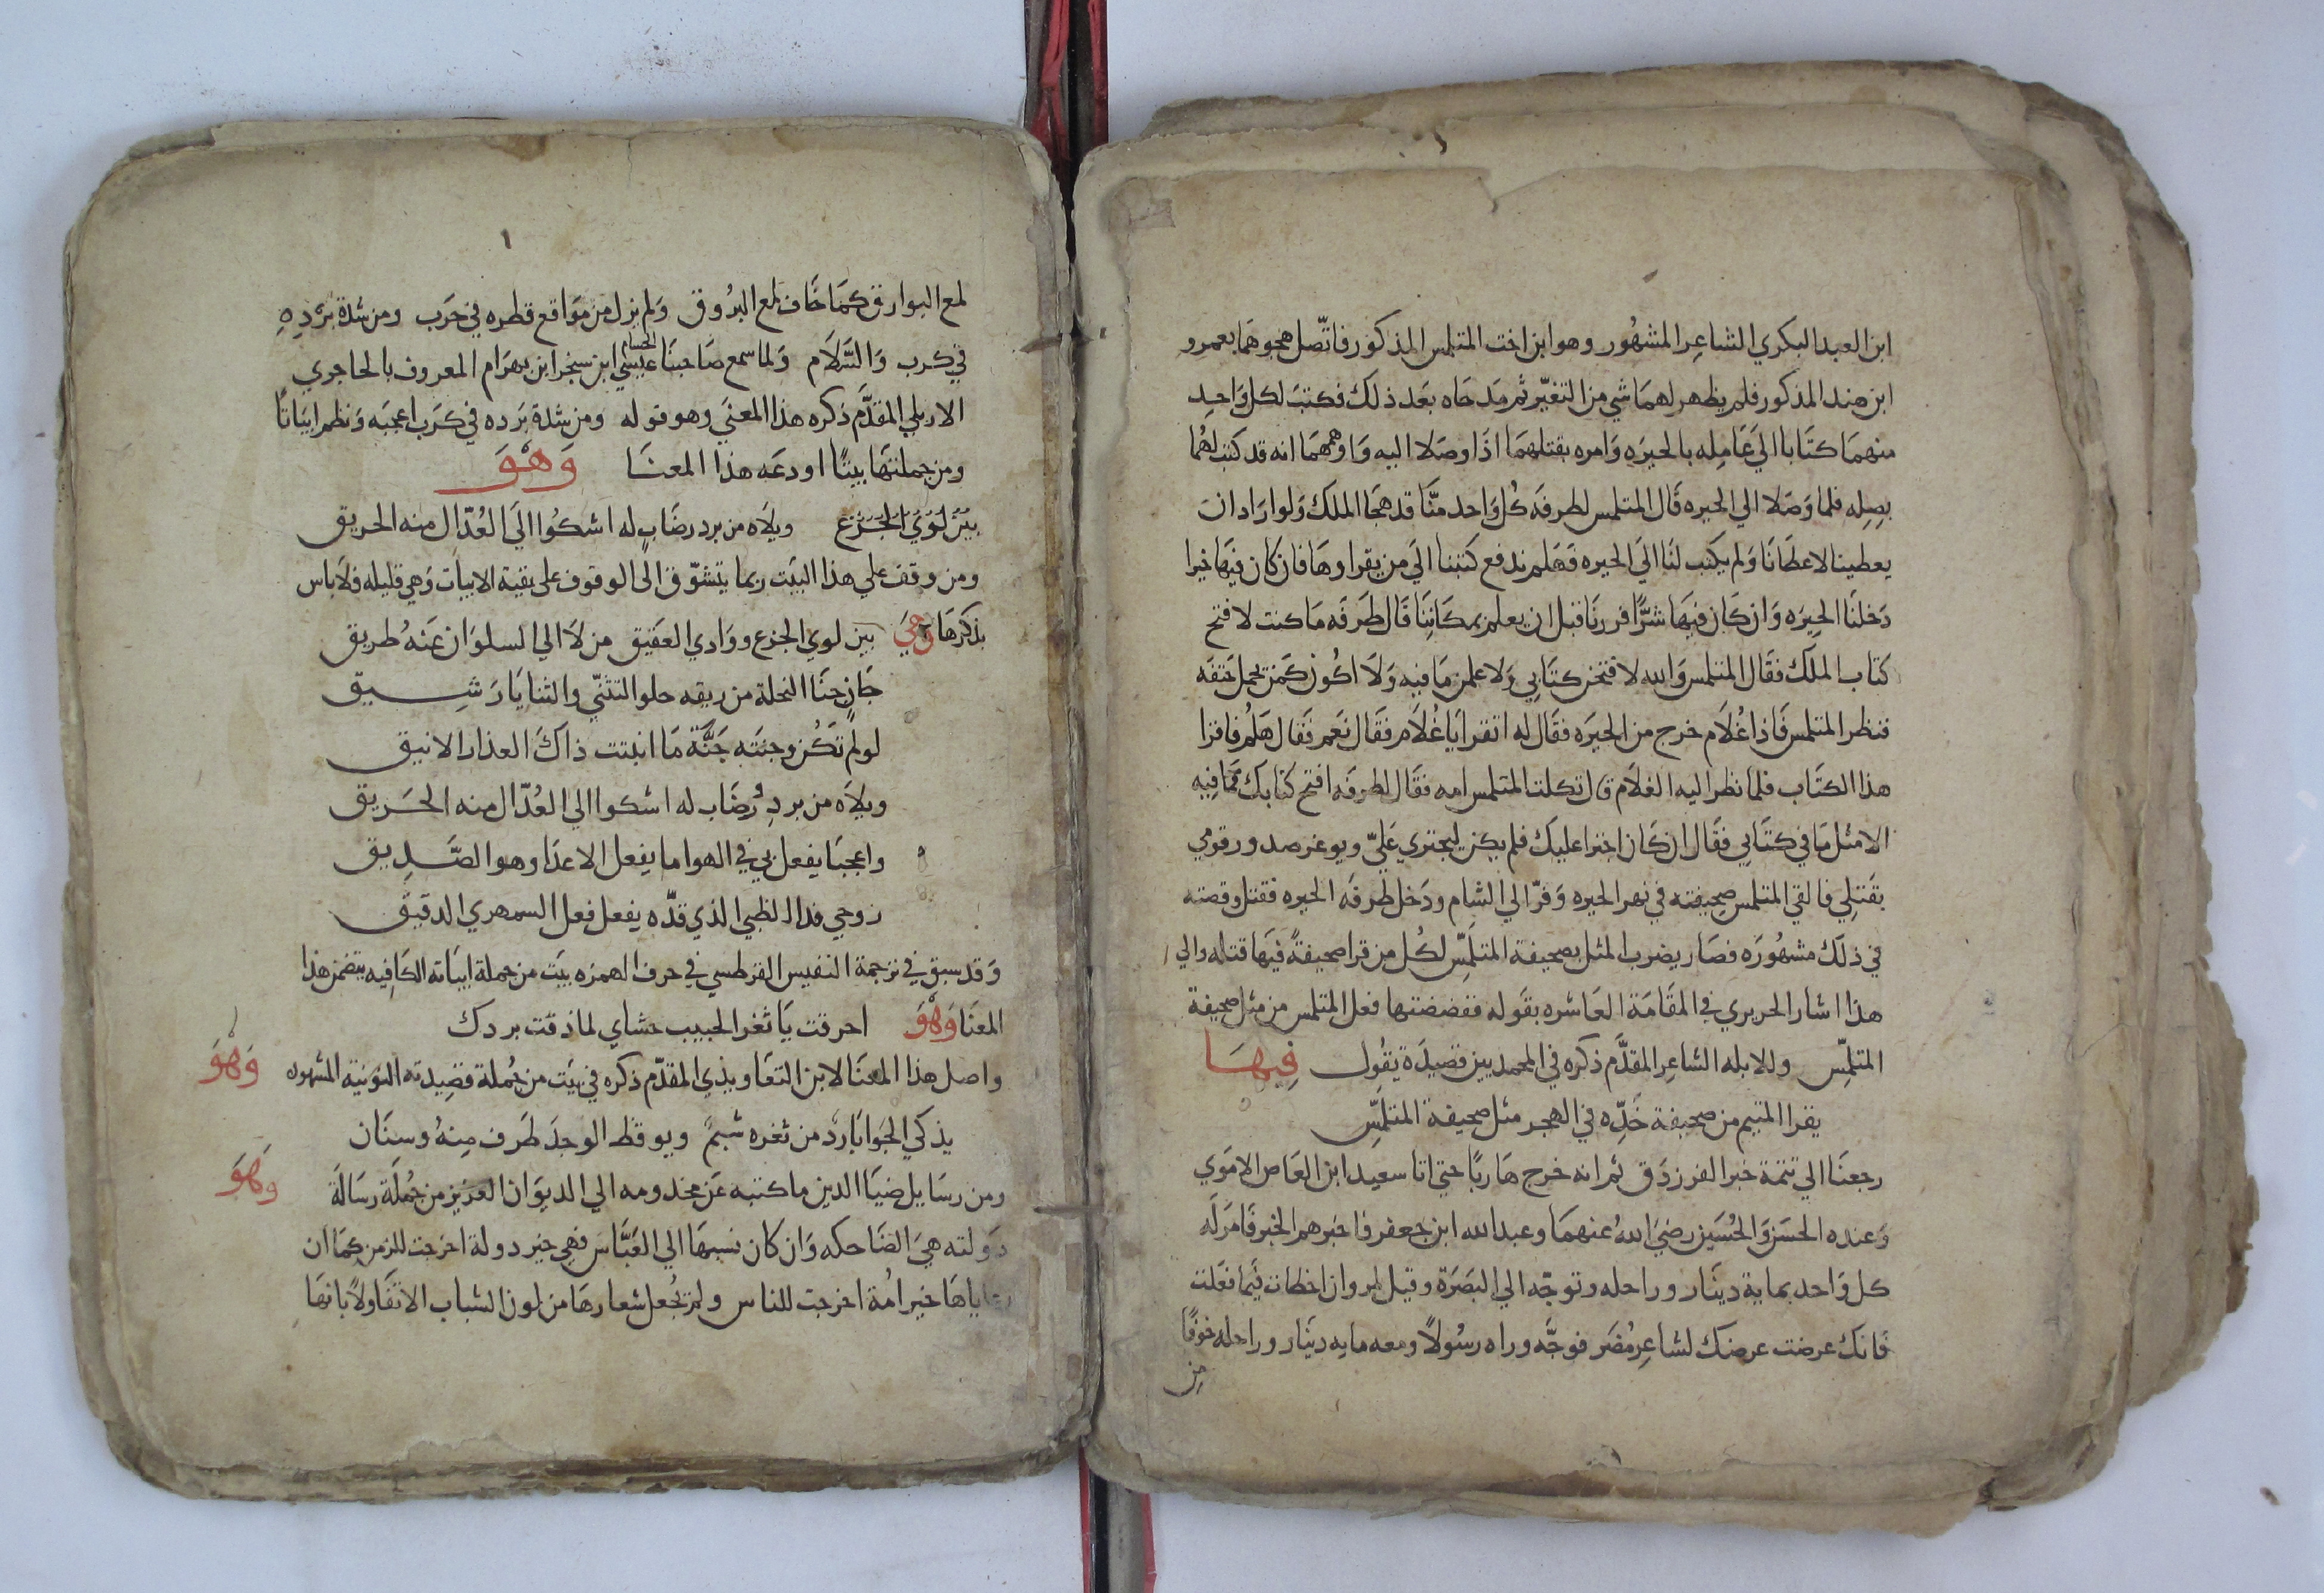 ابن العبد البكري الشاعر المشهور وهو ابن اخت المتلمس المذكور فاتصل هجوهما بعمرو
ابن هند المذكور فلم يظهر لهما شي من التغير ثم مدحاه بعد ذلك فكتب لكل واحد
منهما كتابا الي عامله بالحيره وامره بقتلهما اذا وصلا اليه واوهمهما انه قد كتب لهما
بصله فلما وصلا الي الحيره قال المتلمس لطرفه كل واحد منا قد هجا الملك ولو اراد ان
يعطينا لاعطانا ولم يكتب لنا الي الحيره فهلم ندفع كتبنا الي من يقراوها فان كان فيها خيرا
دخلنا الحيره وان كان فيها شرا فررنا قبل ان يعلم بمكاننا قال طرفه ما كنت لافتح
كتاب الملك فقال المتلمس والله لافتحن كتابي ولاعلمن ما فيه ولا اكون كمن يحمل حتفه
فنظر المتلمس فاذا غلام خرج من الحيره فقال له اتقرا يا غلام فقال نعم فقال هلم فاقرا
هذا الكتاب فلما نظر اليه الغلام قال ثكلت المتلمس امه فقال لطرفه افتح كتابك فما فيه
الا مثل ما في كتابي فقال ان كان اجترا عليك فلم يكن ليجتري علي ويوغر صدور قومي
بقتلي فالقي المتلمس صحيفته في نهر الحيره وفر الي الشام ودخل طرفه الحيره فقتل وقصته
في ذلك مشهوره فصار يضرب المثل بصحيفة المتلمس لكل من قرا صحيفة فيها قتله والي
هذا اشار الحريري في المقامة العاشره بقوله ففضضتها فعل المتلمس من مثل صحيفة
المتلمس وللابله الشاعر المقدم ذكره في المحمدين قصيدة يقول فيها
يقرا المتيم من صحيفة خده في الهجر مثل صحيفة المتلمس
رجعنا الي تتمة خبر الفرزدق ثم انه خرج هاربا حتي اتا سعيد ابن العاص الاموي
وعنده الحسن والحسين رضي الله عنهما وعبد الله ابن جعفر فاخبرهم الخبر فامر له
كل واحد بماية دينار وراحله وتوجه الي البصرة وقيل لمروان اخطات فيما فعلت
فانك عرضت عرضك لشاعر مضر فوجه وراه رسولا ومعه مايه دينار وراحله خوفا
من
لمع البوارق كما خاف لمع البروق ولم يزل من مواقع قطره في حرب ومن شدة برده
في كرب والسلام ولما سمع صاحبنا الحسام عيسي ابن سنجر ابن بهرام المعروف بالحاجري
الاربلي المقدم ذكره هذا المعني وهو قوله ومن شدة برده في كرب اعجبه ونظم ابياتا
ومن جملتها بيتا اودعه هذا المعنا وهو
بين لوي الجزع ويلاه من برد رضاب له اشكوا الي العذال منه الحريق
ومن وقف علي هذا البيت ربما يتشوق الي الوقوف علي بقية الابيات وهي قليله فلا باس
بذكرها وهي بين لوي الجزع ووادي العقيق من لا الي السلوان عنه طريق
جان جنا النحلة من ريقه حلو التثني والثنايا رشيق
لو لم تكن وجنته جنة ما انبتت ذاك العذار الانيق
ويلاه من برد رضاب له اشكوا الي العذال منه الحريق
واعجبا يفعل بي في الهوا ما يفعل الاعدا وهو الصديق
روحي فدا الظبي الذي قده يفعل فعل السمهري الدقيق
وقد سبق في ترجمة النفيس القرطسي في حرف الهمزه بيت من جملة ابياته الكافيه يتضمن هذا
المعنا وهو احرقت يا ثغر الحبيب حشاي لما ذقت بردك
واصل هذا المعنا لابن التعاويذي المقدم ذكره في بيت من جملة قصيدته النونية المشهوره وهو
يذكي الجوا بارد من ثغره شبم ويوقظ الوجد طرف منه وسنان
ومن رسايل ضيا الدين ما كتبه عن مخدومه الي الديوان العزيز من جملة رسالة وهو
دولته هي الضاحكه وان كان نسبها الي العباس فهي خير دولة اخرجت للزمن كما ان
رعاياها خير امة اخرجت للناس ولم يجعل شعارها من لون الشباب الا تفاولا بانها